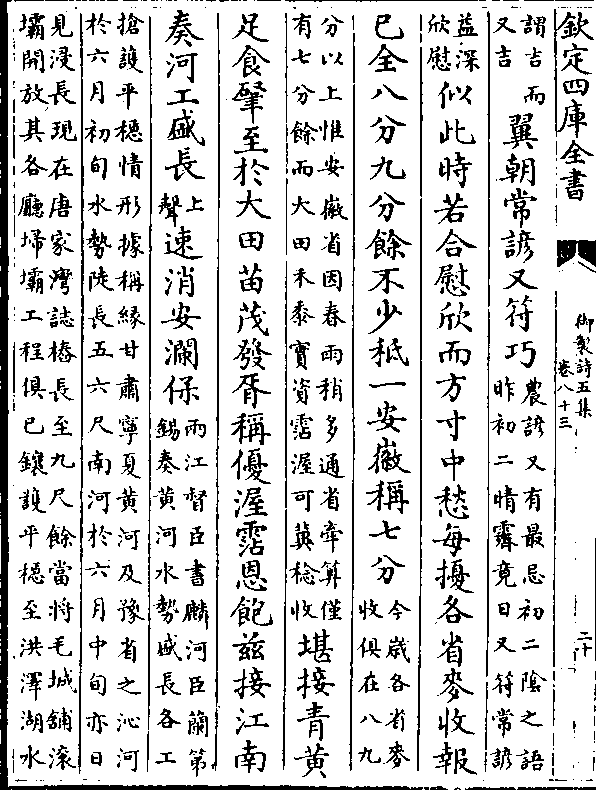 欽定四庫全書
御製詩五集
卷八十三
二十
謂吉而
又吉
翼朝常諺又符巧
農諺又有最忌初二陰之語
昨初二晴霽竟日又符常諺
益深
欣慰
似此時若合慰欣而方寸中愁每擾各省麥收報
已全八分九分餘不少秪一安徽稱七分
今歲各省麥
收俱在八九
分以上惟安徽省因春雨稍多通省牽算僅
有七分餘而大田禾黍實資霑渥可冀稔收
堪接青黃
足食肈至於大田苗茂發胥稱優渥霑恩飽茲接江南
奏河工盛長
上
聲
速消安瀾保
兩江督臣書麟河臣蘭第
錫奏黃河水勢盛長各工
搶護平穩情形據稱緣甘肅寧夏黃河及豫省之沁河
於六月初旬水勢陡長五六尺南河於六月中旬亦日
見浸長現在唐家灣誌樁長至九尺餘當將毛城舖滾
壩開放其各廳埽壩工程俱已鑲護平穩至洪澤湖水